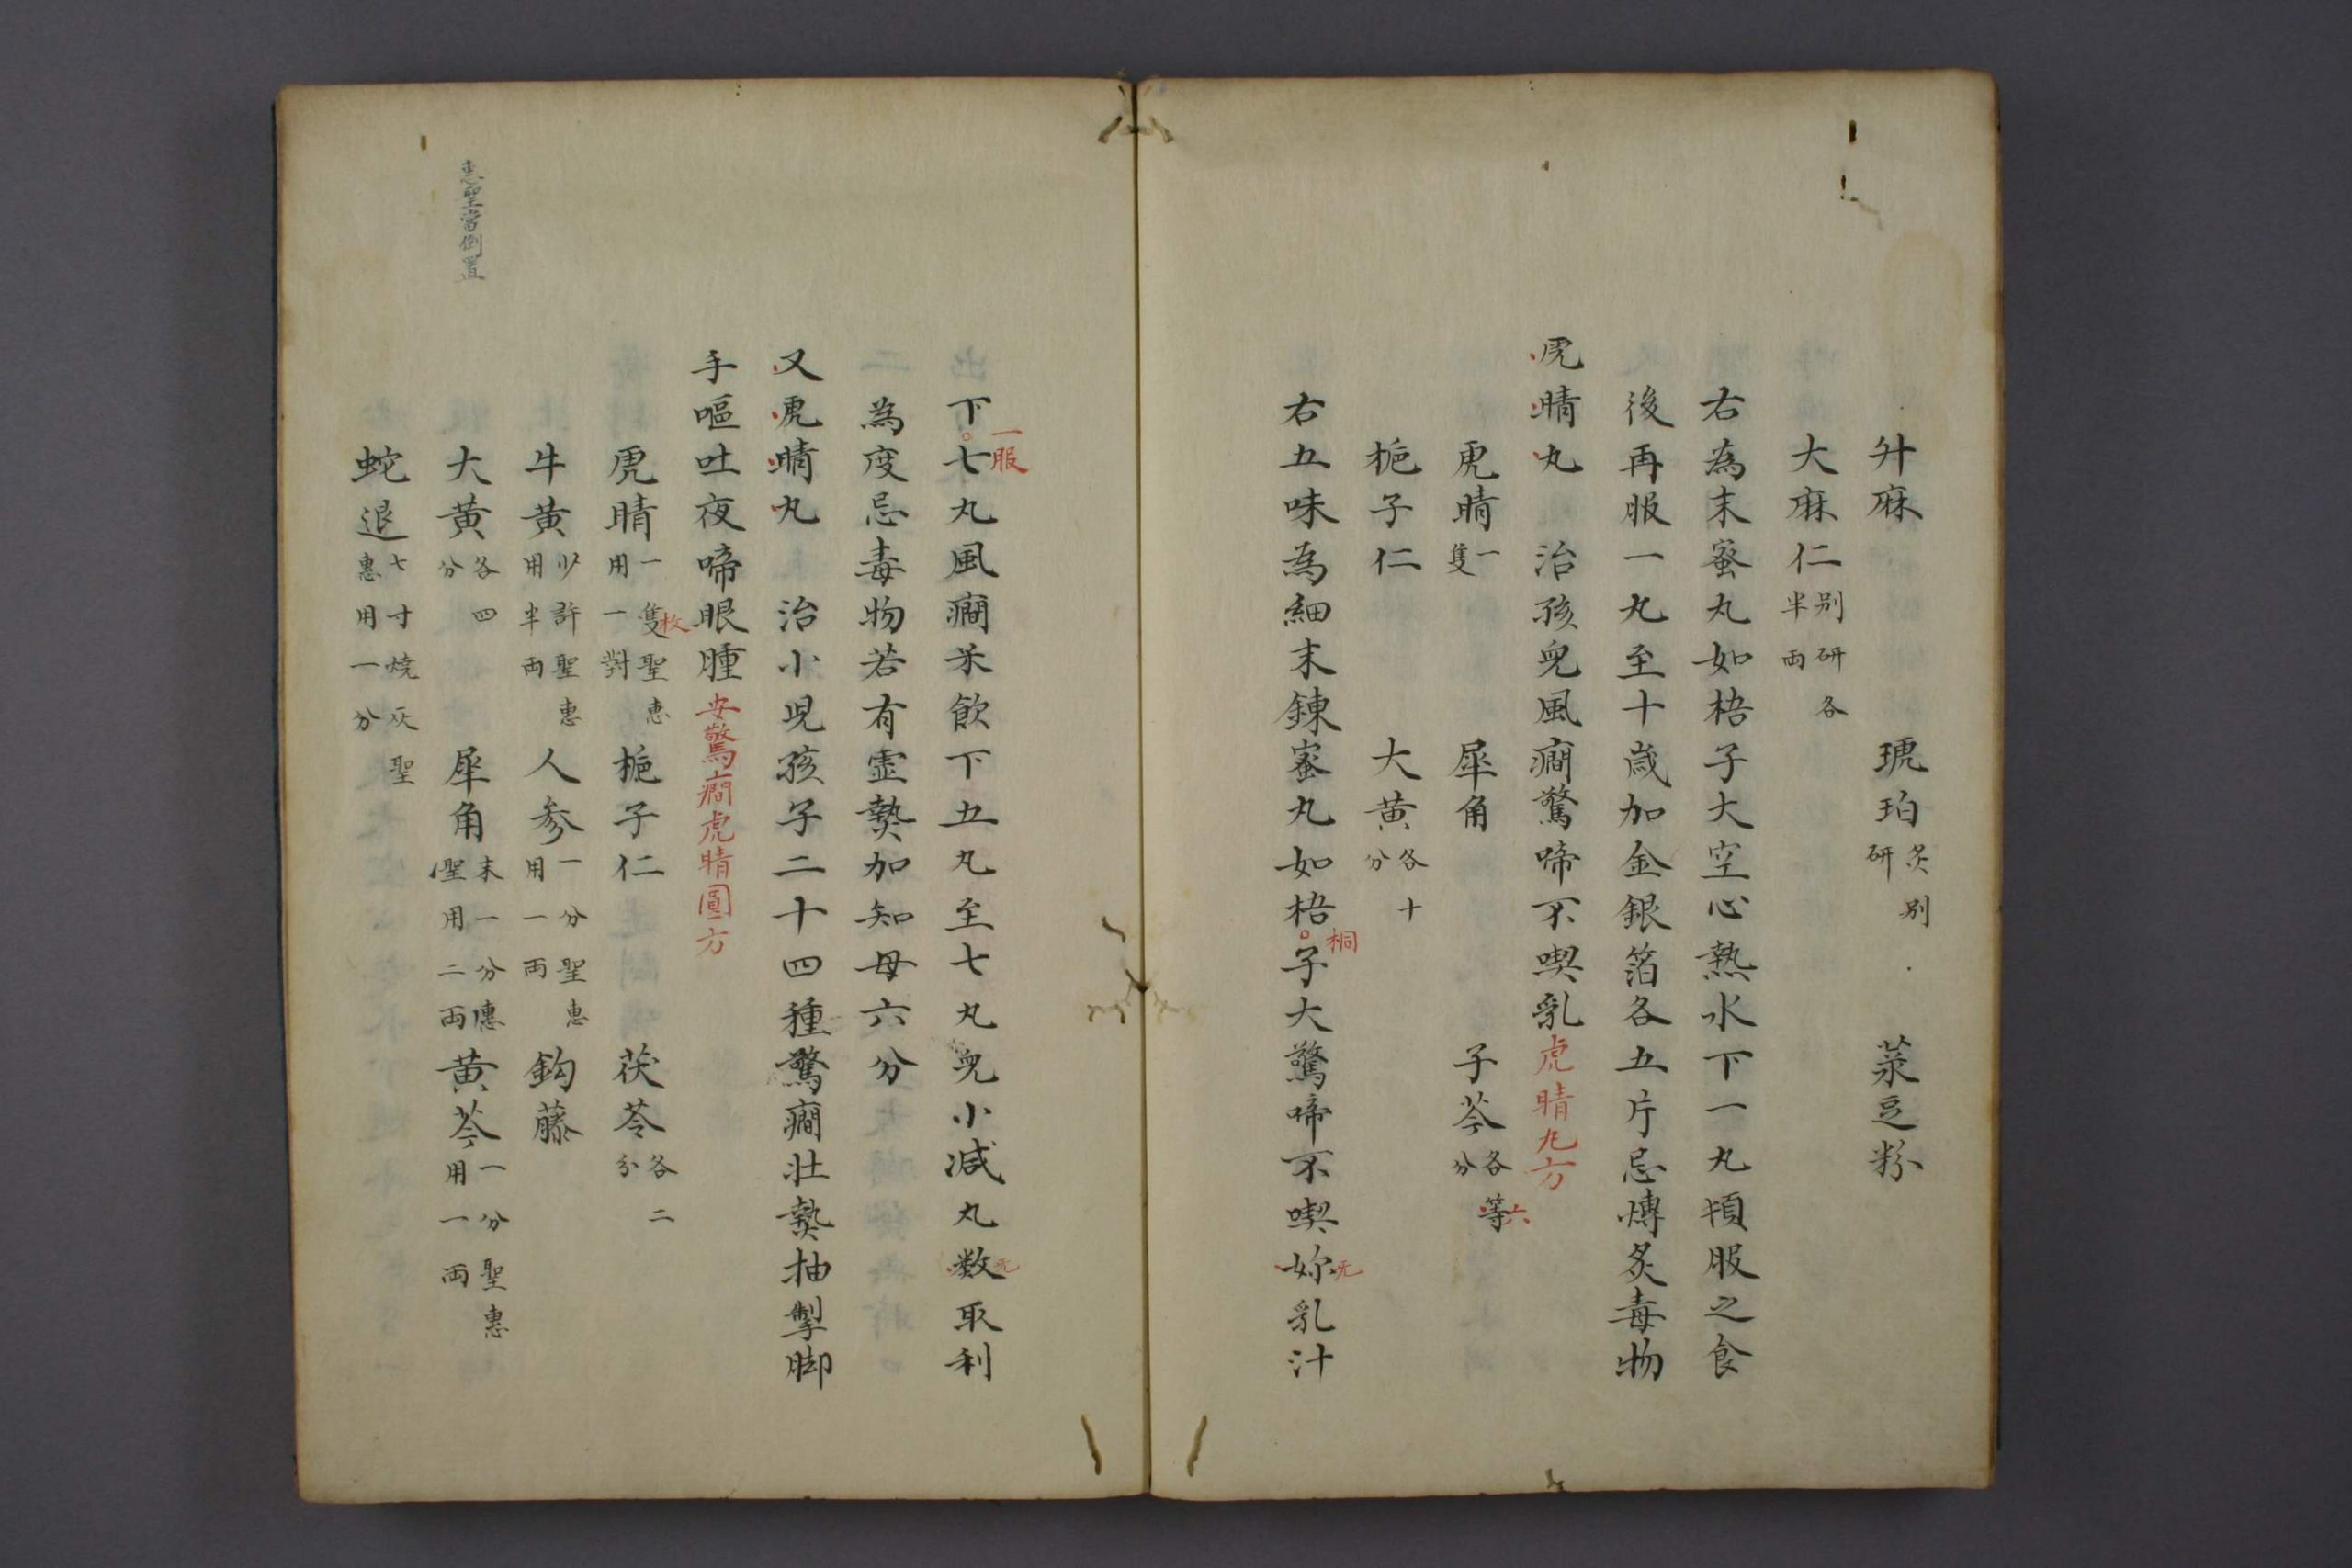 升麻　琥珀炙別研　菉豆粉
大麻仁別研各半両
右為末蜜丸如梧子大空心熱水下一丸頓服之食
後再服一丸至十歳加金銀箔各五片忌煿炙毒物
虎睛丸　治孩兒風癇驚啼不喫乳虎睛丸方
虎睛一隻　犀角　子芩各等分六
梔子仁　大黄各十分
右五味為細末錬蜜丸如梧子大驚啼不喫妳乳汁
桐
无
下七丸風癇米飲下五丸至七丸兒小减丸数取利
一服
无
為度忌毒物若有虚熱加知母六分
又虎睛丸　治小児孩子二十四種驚癇壮熱抽掣脚
手嘔吐夜啼眼腫安驚癇虎睛圓方
虎睛一隻聖惠用一對　梔子仁　茯苓各二分
枚
牛黄少許聖惠用半両　人参一分聖惠用一両　鈎藤
大黄各四分　犀角末一分惠聖用二両　黄芩一分聖惠用一両
蛇退七寸焼灰聖惠用一分
惠聖當倒置